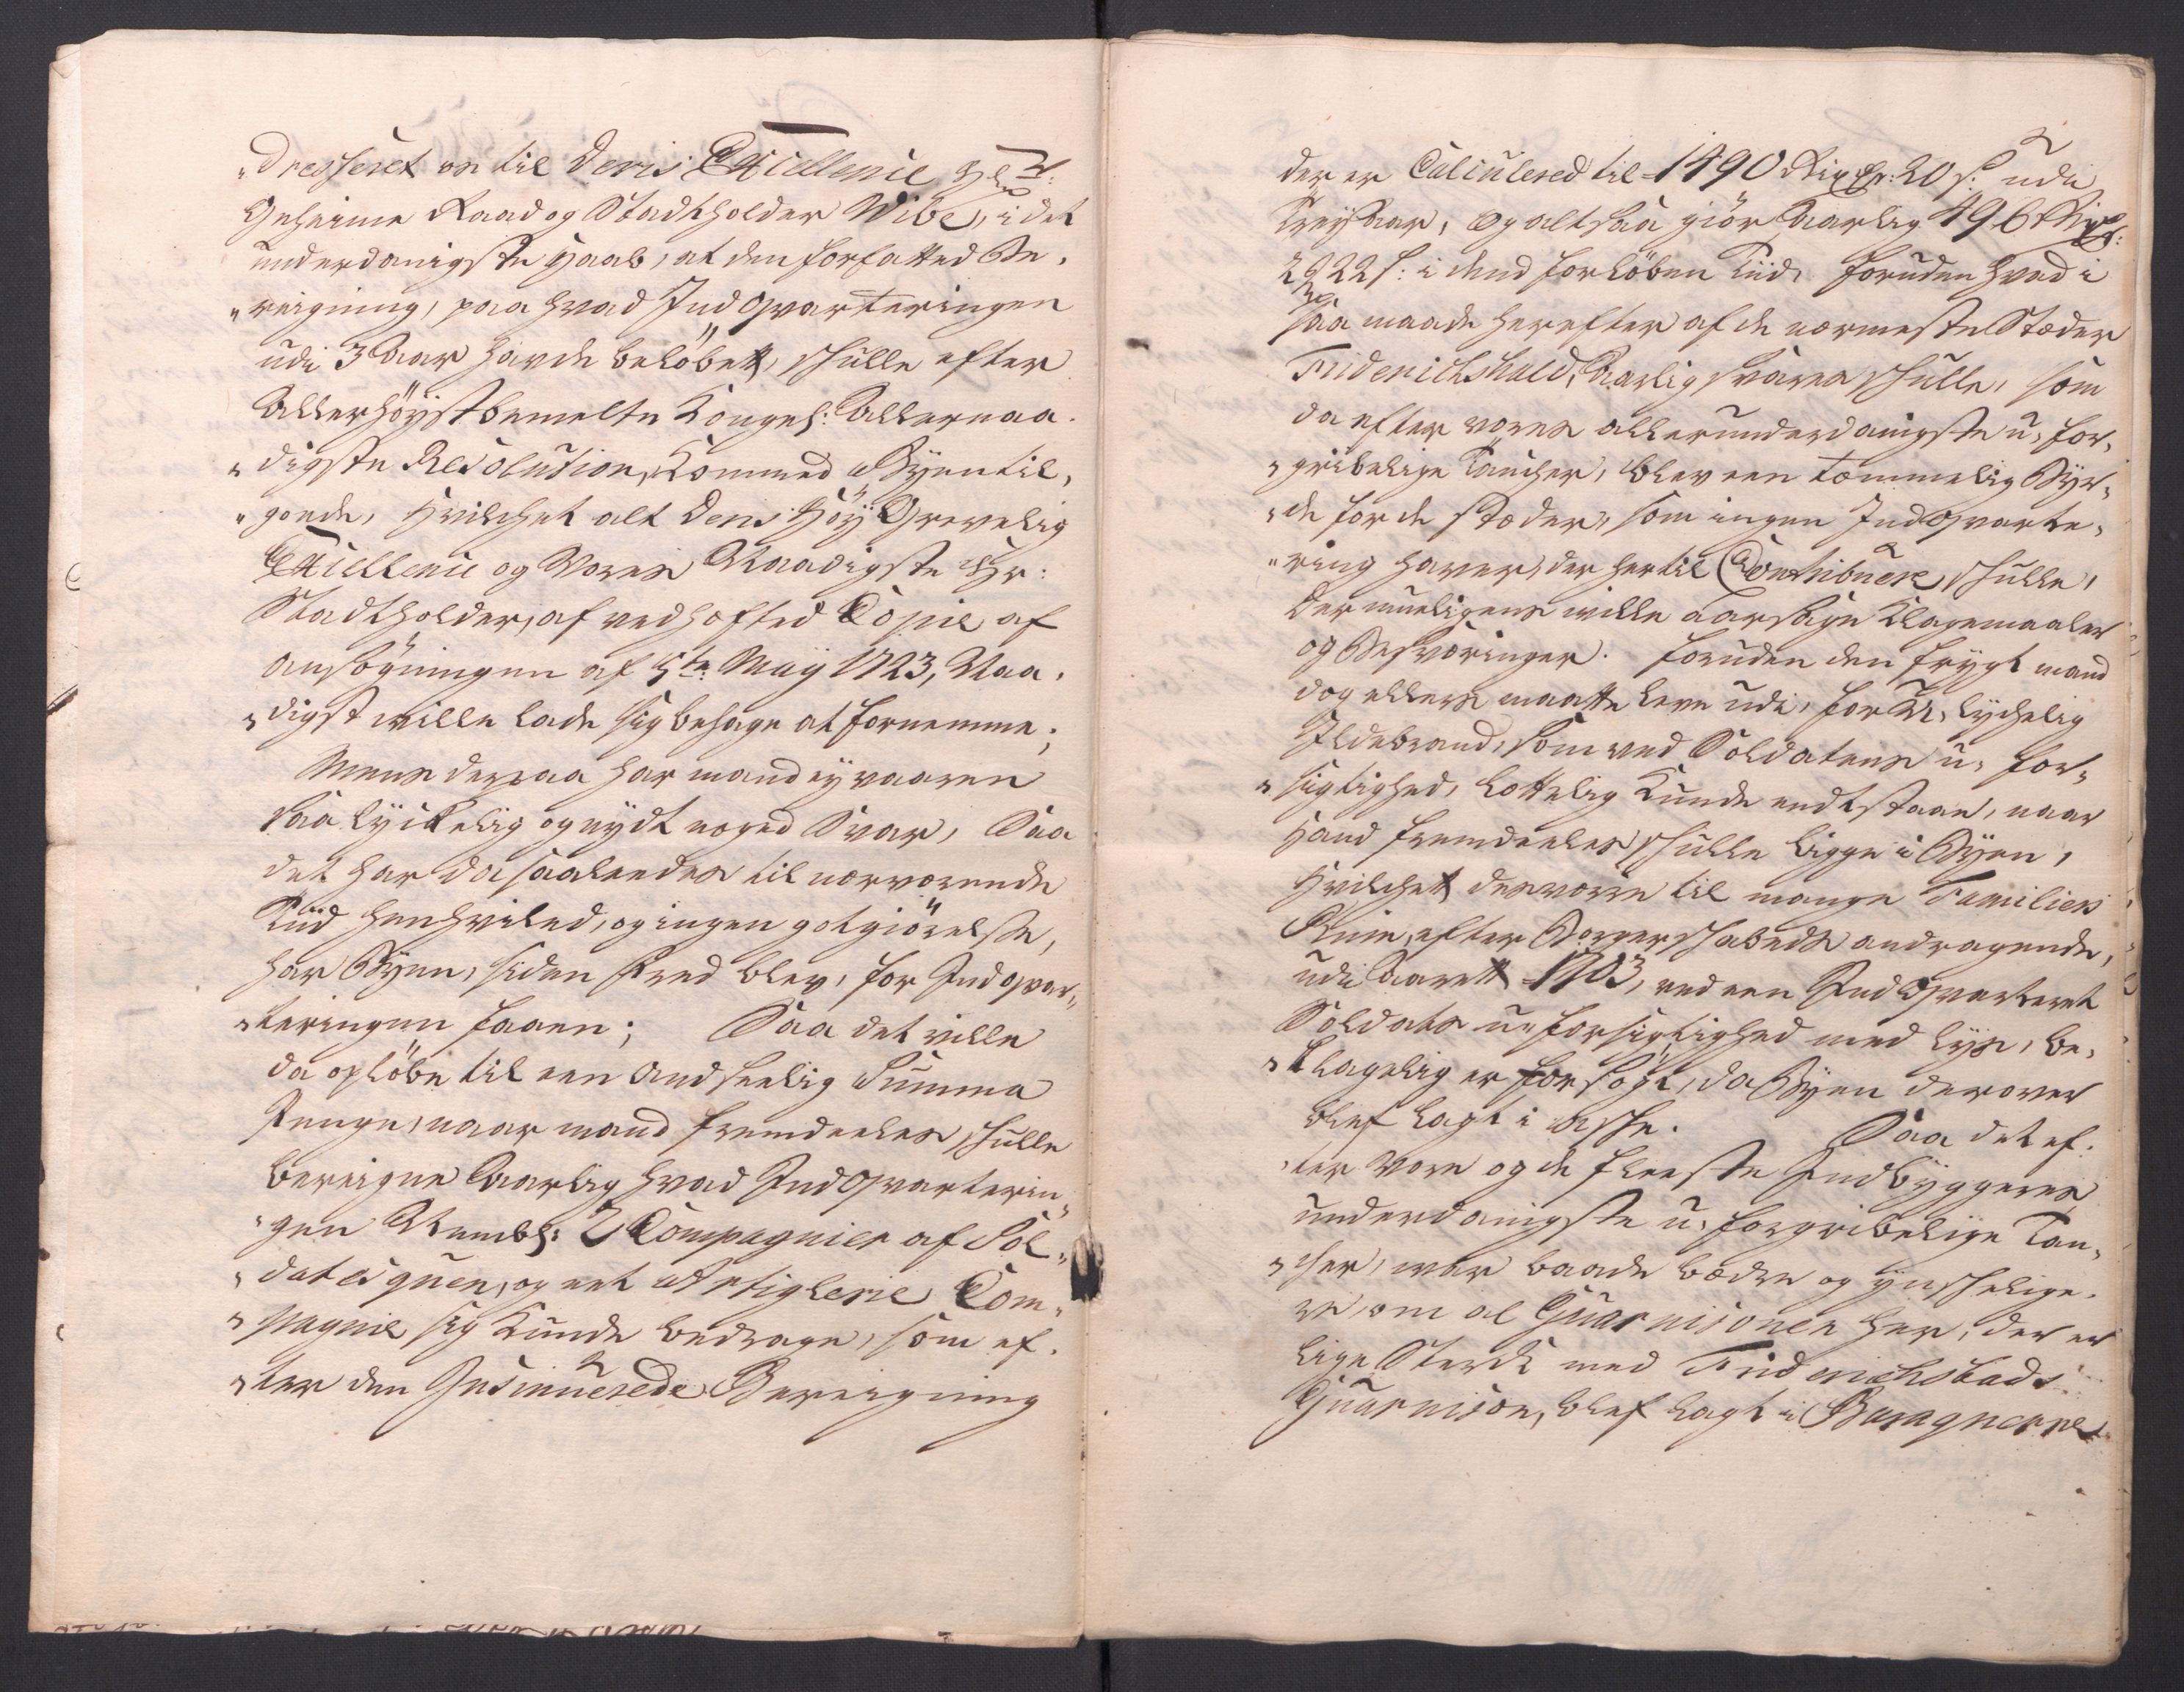 "dresseret os til Deris Excellence H: Hr:
Geheime Raad og Stadtholder Wibe, i det
underdanigste Haab, at den forfatted Be¬
"reigning, paa hvad Indqvarteringen
udi 3 Aar hafde beløbet, skulle efter
Allerhöÿstbemelte Kongel: Allernaa¬
"digste Resolution, komme Byen til,
"gode, hvilchet alt Deris HöÿGrevelig
Excellence og Vores Naadigste Hr:
Stadtholder, af vedhæfted Copie af
ansögningen af 5te Maÿ 1723, Naa¬
"digst wille lade sig behage at fornemme;
Mens derpaa har mand eÿ vaaren
saa lÿckelig og nÿdt noged Svar, Saa
det har da saaledes til nærværende
Tiid henhviled, og ingen godtgiörelse,
har Bÿen, siden Fred blev, for Indqvar¬
"teringen faaen; Saa det ville
da opløbe til een Andseelig Summa
Penge, naar mand fremdeeles skulle
bereigne Aarlig hvad Indqvarterin¬
"gen Nembl: 2 Compagnier af Sol¬
"datesquen, og eet Artiglerie Com¬
"pagnie sig kunde bedrage, som ef¬
"ter den Insinuerede Bereigning
der er Calculered til 1490 Rixdr: 20 s: udi
Treÿ Aar, og altsaa giör Aarlig 496 Rixdr:
22 s: i dend forløben Tiid, foruden hvad i
saa maade herefter af de nærmeste Stæder
Friderichshald, Aarlig svares skulle, som
da efter vores allerunderdanigste u-for¬
"gribelige Tancher, blev een temmelig Bÿr¬
"de for de stæder, som ingen Indqvarte¬
"ring haver, der hertil Contribuere skulle,
der mueligens wille aarsage Klagemaaler
og Besværinger. foruden den frÿgt mand
dog ellers maatte leve udi, for U-lÿchelig
Ildebrand, som ved Soldatens u-for¬
"sigtighed, lættelig kunde endtstaae, naar
hand fremdeeles skulle ligge i Bÿen,
hvilchet desværre til mange Familiers
Ruin, efter Borgerskabeds andragende,
udi Aaret 1703, ved een Indqvarteret
Soldats u-forsigtighed med lÿs, be¬
"klagelig er forsögt, da Bÿen derover
blef lagt i aske. Saa det ef¬
"ter Vore og de fleeste Indbÿggeres
underdanigste u-forgribelige Tan¬
"cher, war baade bædre og ÿnskelige¬
re, om al Guarnisonen her, der er
lige Sterck med Friderichstads
Guarnison, blef lagt i Baraquerne